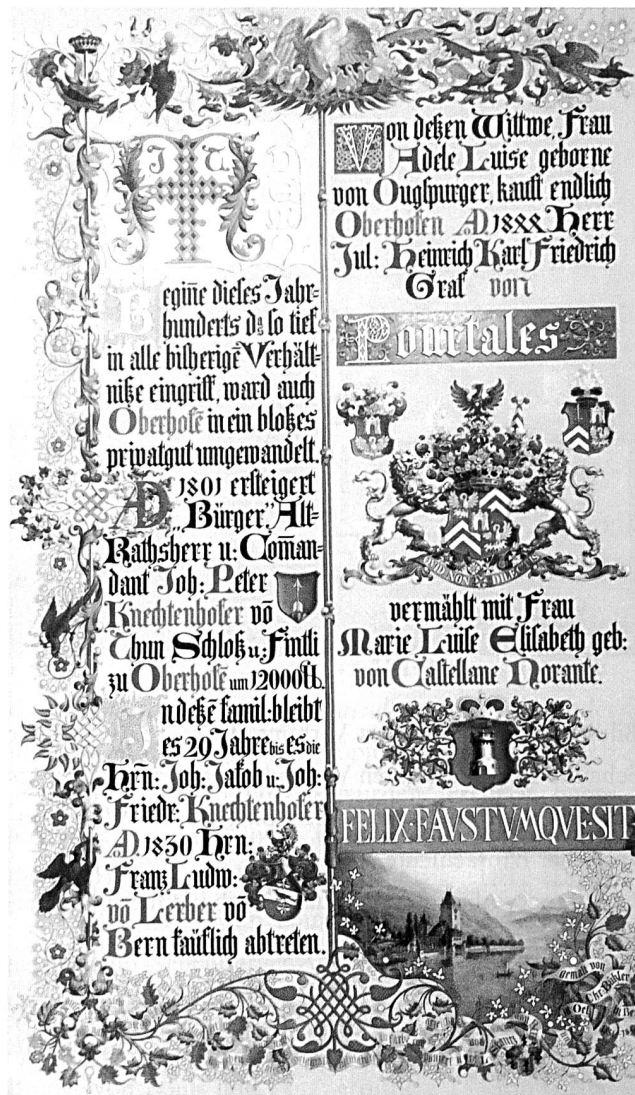 I T
Begin̄e dieses Jahr-
hunderts das so tief
in alle bisherigē Verhält-
niße eingriff, ward auch
Oberhofē in ein bloßes
privatgut umgewandelt.
AD 1801 ersteigert
„Bürger", Alt-
Rathsherr u: Com̄an-
dant Joh: Peter
Knechtenhofer vō
Thun Schloß u: Fintli
zu Oberhofē um 12000 ℔.
In deßē famil: bleibt
es 29 Jahre bis es die
Hrn: Joh: Jakob u: Joh:
Friedr: Knechtenhofer
AD. 1830 Hrn:
Franz Ludw:
vō Lerber vō
Bern käuflich abtreten.
Von deßen Wittwe, Frau
Adele Luise geborne
von Ougspurger, kauft endlich
Oberhofen AD. 1888 Herr
Jul: Heinrich Karl Friedrich
Graf von
Pourtales
QUID NON DILECT
vermählt mit Frau
Marie Luise Elisabeth geb:
von Castellane Norante.
FELIX·FAVSTVMQVE SIT
gemalt von
Chr. Bühler